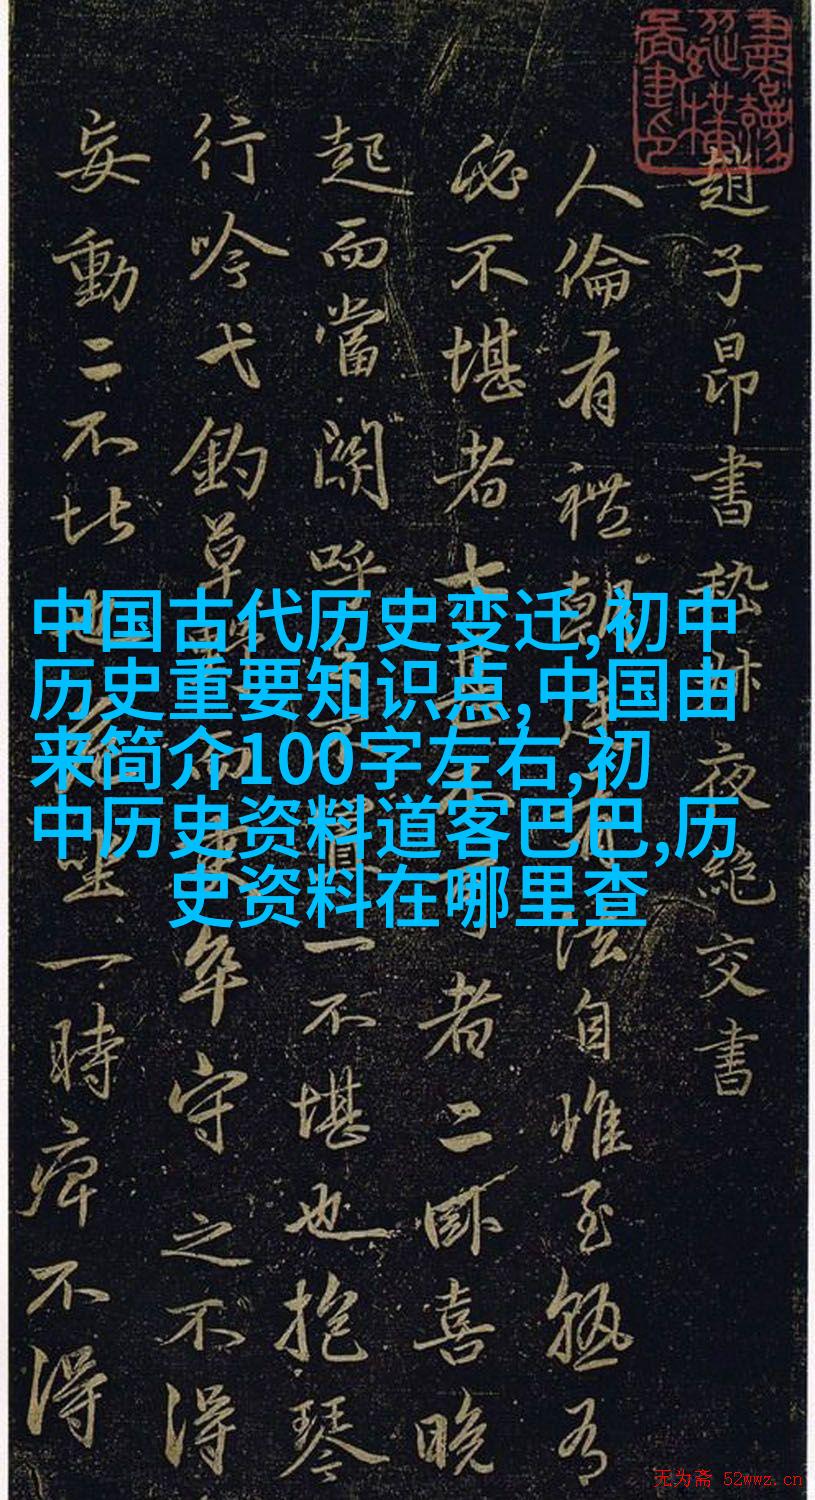 趙子昂書嵇叔夜絕交書
人倫有禮朝廷有法自惟至熟有
必不堪者七甚不可者二卧喜晚
起而當關呼之不置一不堪也抱琴
行吟弋釣草野而吏卒守之不得
妄動二不堪也危坐一時痺不得
中国古代历史变迁,初中
历史重要知识点,中国由
来简介100字左右,初
中历史资料道客巴巴,历
史资料在哪里查
无为斋 52wwz.cn